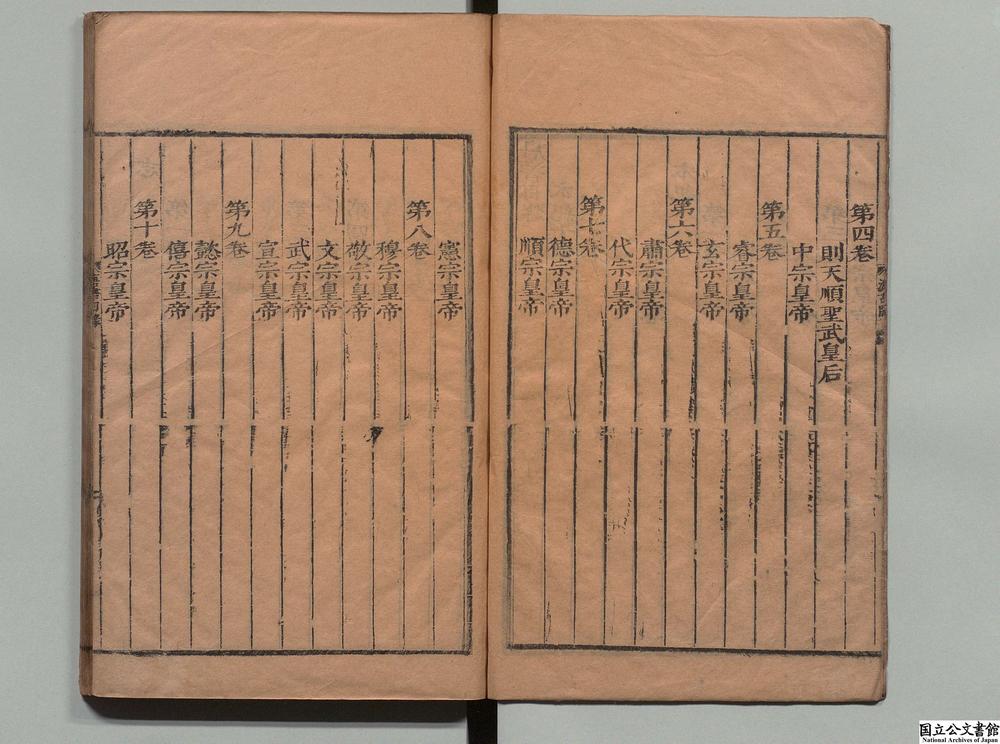 第四卷
則天順聖武皇后
中宗皇帝
第五卷
睿宗皇帝
玄宗皇帝
第六卷
肅宗皇帝
代宗皇帝
第七卷
德宗皇帝
順宗皇帝
憲宗皇帝
第八卷
穆宗皇帝
敬宗皇帝
文宗皇帝
武宗皇帝
宣宗皇帝
第九卷
懿宗皇帝
僖宗皇帝
第十卷
昭宗皇帝
国立公文書館
National Archives of Japan